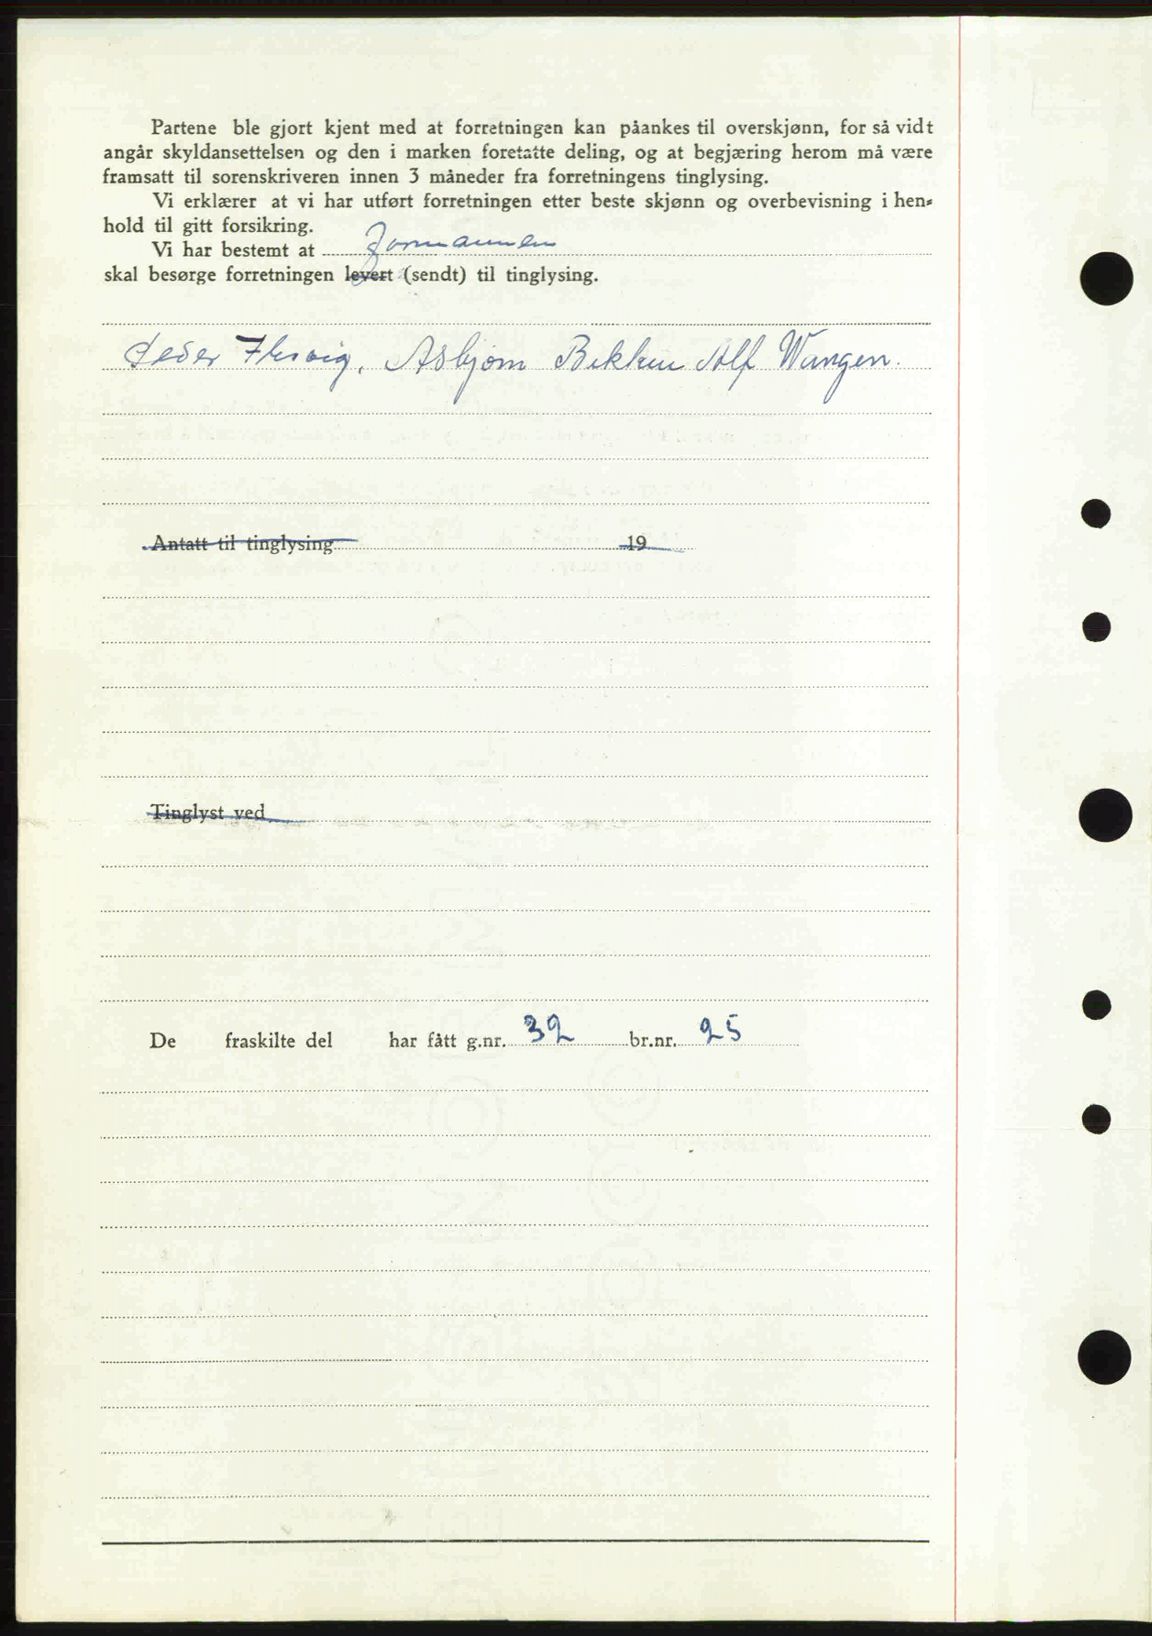 Partene ble gjort kjent med at forretningen kan påankes til overskjønn, for så vidt
angår skyldansettelsen og den i marken foretatte deling, og at begjæring herom må være
framsatt til sorenskriveren innen 3 måneder fra forretningens tinglysing.
Vi erklærer at vi har utført forretningen etter beste skjønn og overbevisning i hen=
hold til gitt forsikring.
Vi har bestemt at formannen
skal besørge forretningen levert (sendt) til tinglysing.
Peder Asbjørn Bekken Alf Wangen.
Antatt til tinglysing 19
Tinglyst ved
De fraskilte del har fått g.nr. 32 br.nr. 25